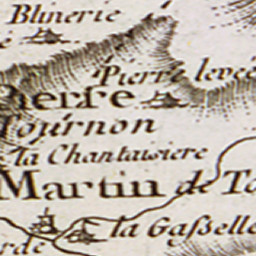 Blinerie
Pierre levée
Pierre
Tournon
la Chantaisiere
Martin de To
la Gaßelle